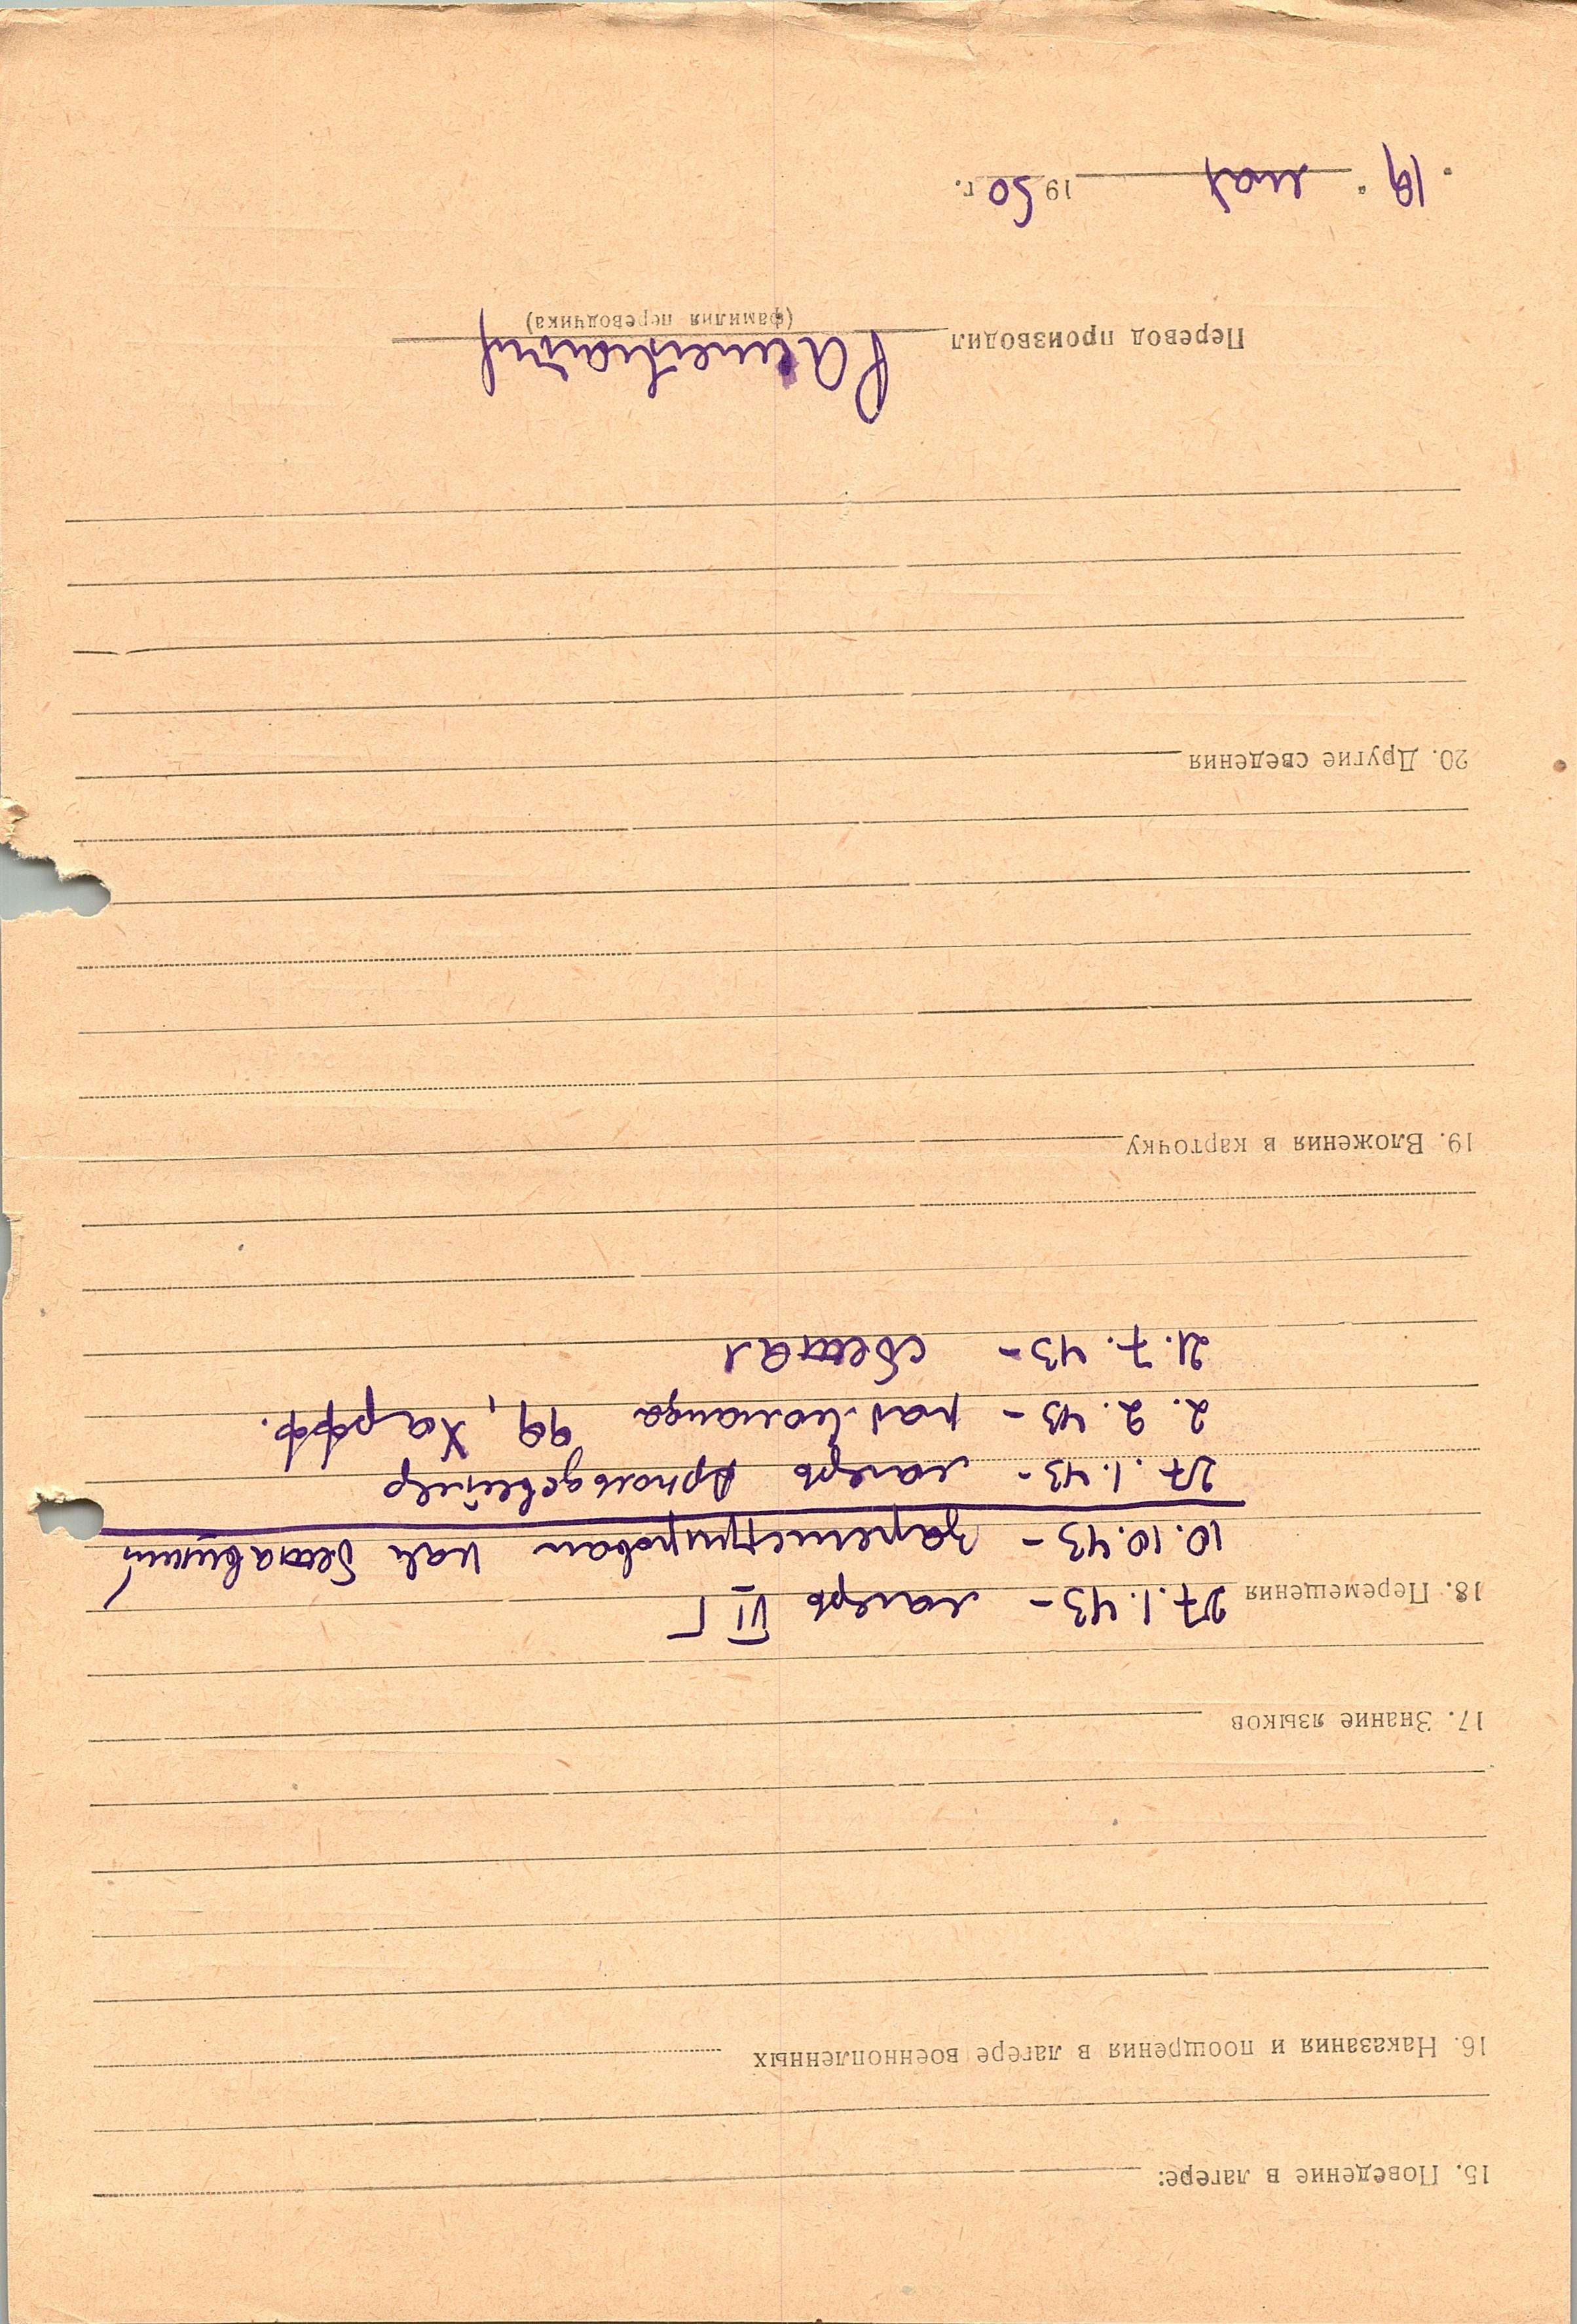 15. Поведение в лагере:
16. Наказания и поощрения в лагере военнопленных
17. Знание языков
18. Перемещения 27.1.43 – лагерь VI Г
10.10.43 – зарегистрирован как бежавший
27.1.43 – лагерь Арнольдсвейлер
2.2.43 – раб. команда 99, Харфф.
21.7.43 – сбежал
19. Вложения в карточку
20. Другие сведения
Перевод производил
(фамилия переводчика)
"19" мая 1950 г.